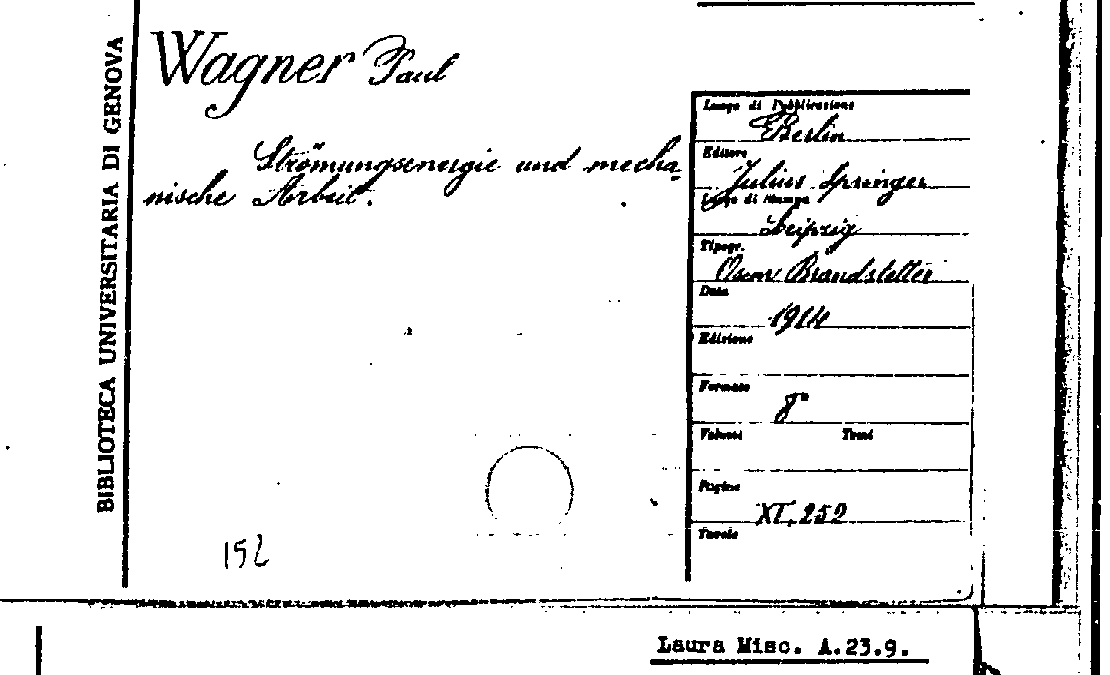 BIBLIOTECA UNIVERSITARIA DI GENOVA
Wagner Paul
Strömungsenergie und mecha-
nische Arbeit.
Luogo di Pubblicazione
Berlin
Editore
Julius Springer
Luogo di stampa
Leipzig
Tipogr.
Oscar Brandstetter
Data
1914
Edizione
Formato
8°
Volumi Tomi
Pagine
XI, 252
Tavole
152
Laura Misc. A.23.9.